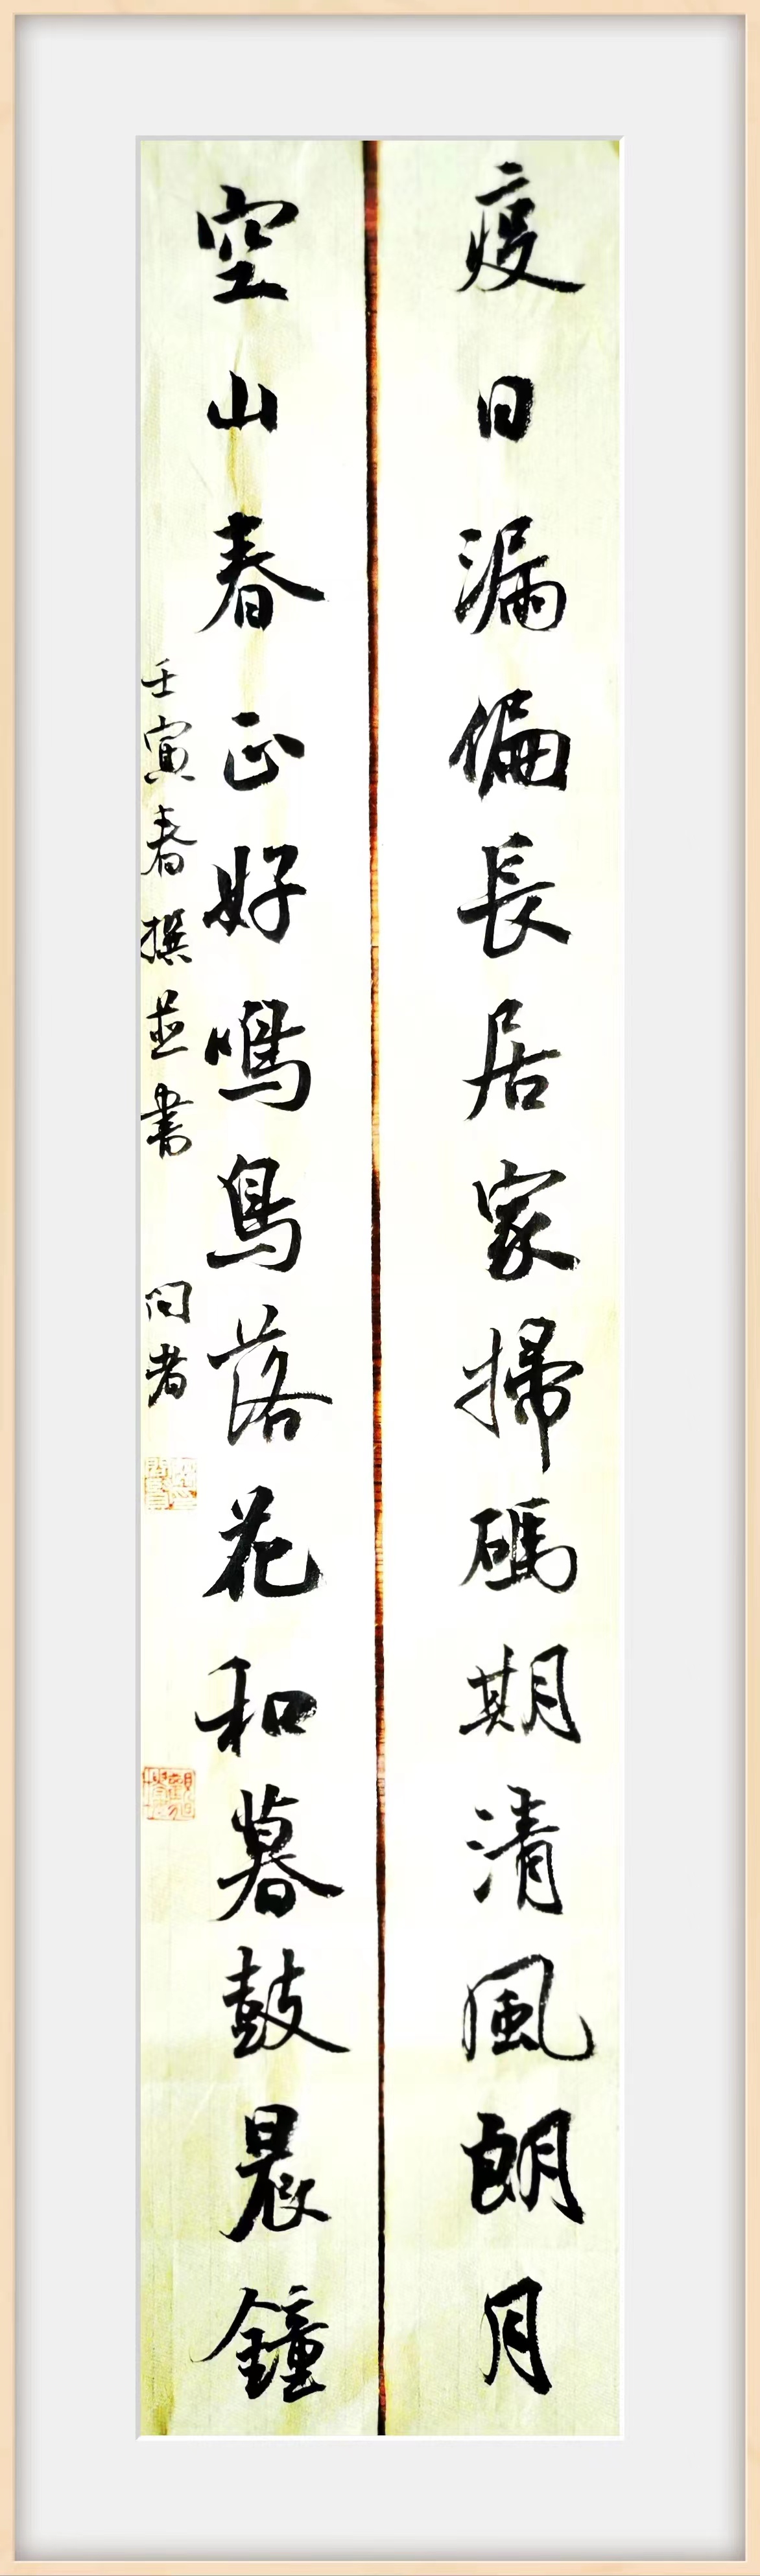 疫日漏偏長居家掃碼期清風朗月
空山春正好鳴鳥落花和暮鼓晨鐘
壬寅春撰並書 問者